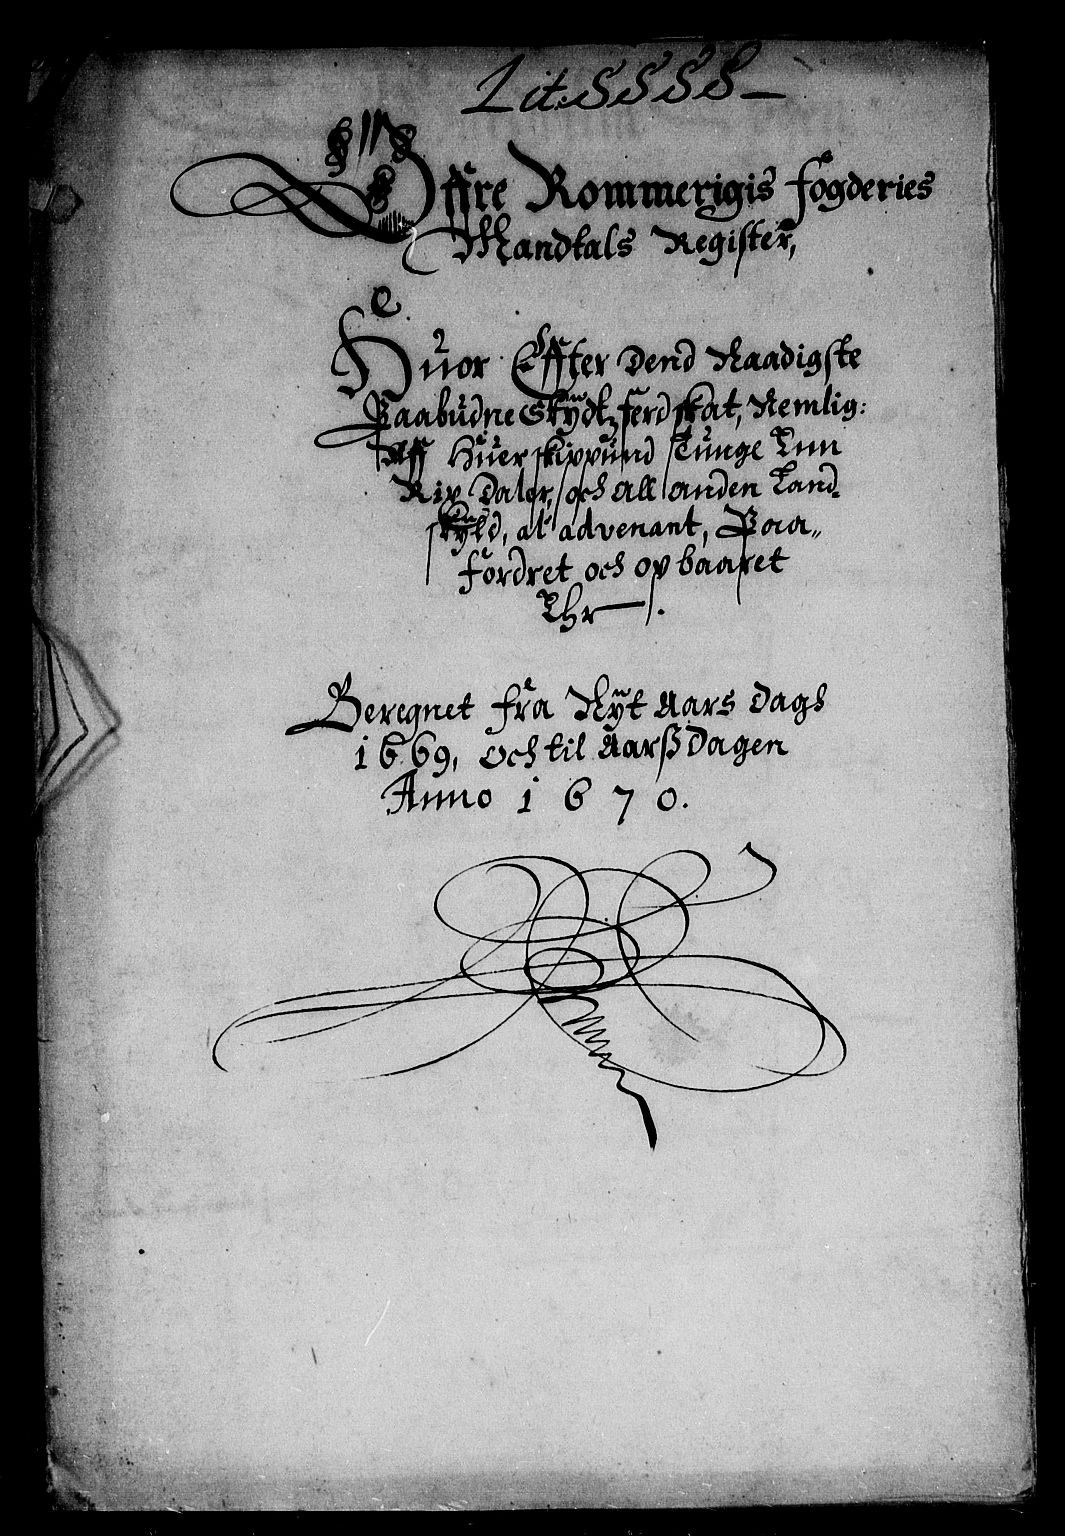 Lit: SSSS
Öffre Rommerigis fogderies
Mandtals Register,
Huor Effter Dend Naadigste
Paabudne Skydtzferd skat, Nemlig:
Aff Huer skippund Tunge Enn
Rix Daler, och all anden Land-
skyld, at advenant, Paa„
fordret och opbaaret
Ehr
Beregnet fra Nyt Aars Dagh
1669, och til Aarß Dagen
Anno 1670.